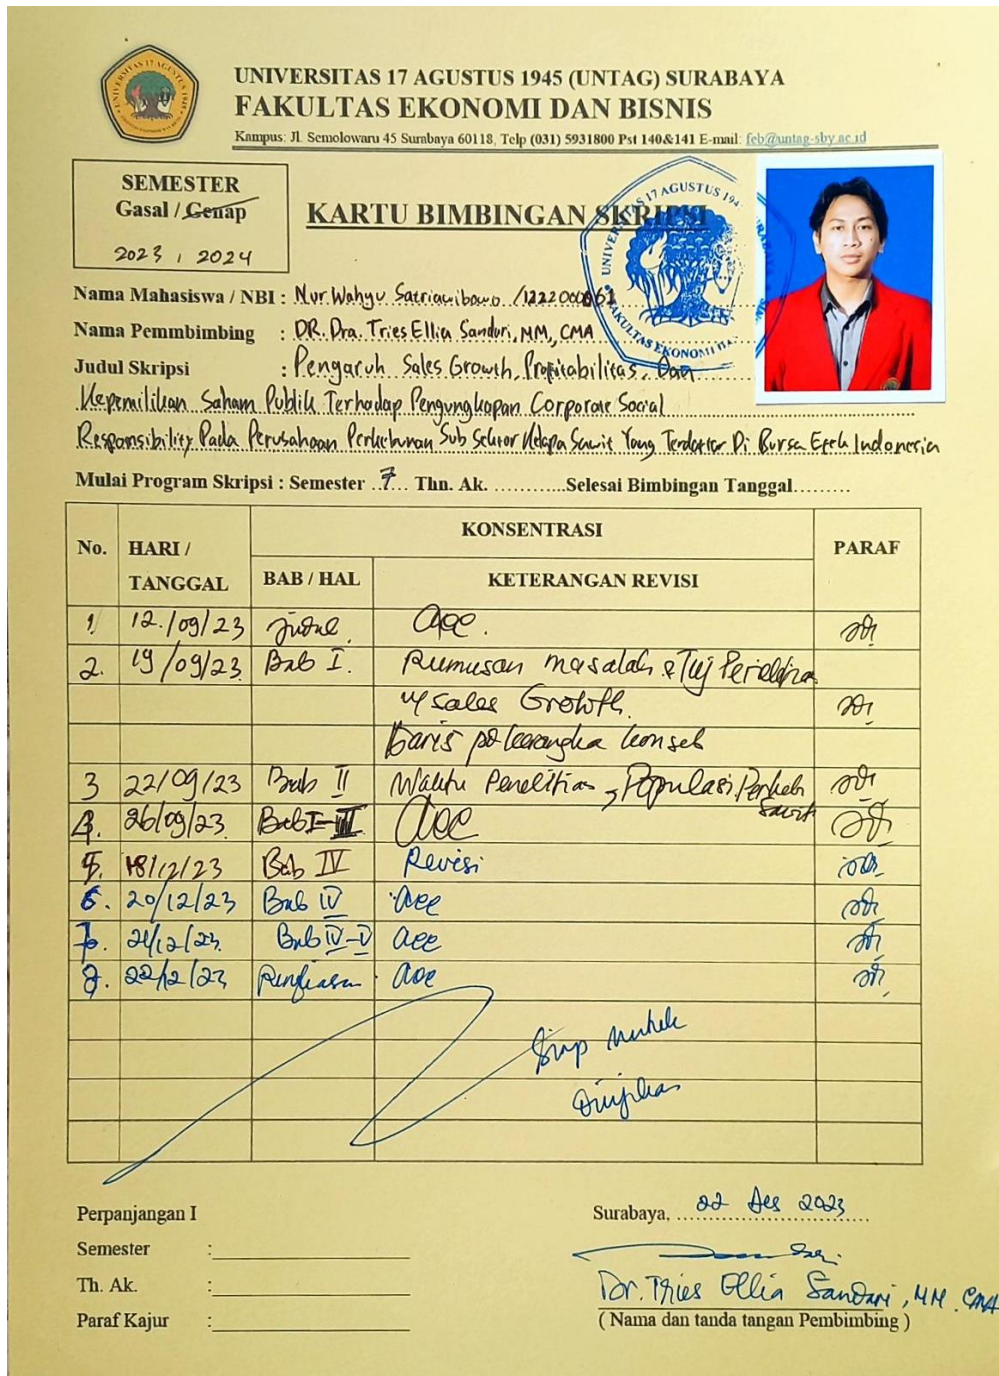 UNIVERSITAS 17 AGUSTUS 1945 (UNTAG) SURABAYA
FAKULTAS EKONOMI DAN BISNIS
Kampus: Jl. Semolowaru 45 Surabaya 60118, Telp (031) 5931800 Pst 140&141 E-mail: feb@untag-sby.ac.id
SEMESTER
Gasal / Genap
2023 / 2024
KARTU BIMBINGAN SKRIPSI
Nama Mahasiswa / NBI : Nur Wahyu Satriawibowo /1222000061
Nama Pemmbimbing : DR. Dra. Tries Ellia Sandari, MM, CMA
Judul Skripsi : Pengaruh Sales Growth, Profitabilitas, Dan
Kepemilikan Saham Publik Terhadap Pengungkapan Corporate Social
Responsibility Pada Perusahaan Perkebunan Sub Sektor Kelapa Sawit Yang Terdaftar Di Bursa Efek Indonesia
Mulai Program Skripsi : Semester 7 Thn. Ak. ............Selesai Bimbingan Tanggal.........
No. HARI / TANGGAL KONSENTRASI PARAF
BAB / HAL KETERANGAN REVISI
1. 12/09/23 Judul acc.
2. 19/09/23 Bab I. Rumusan masalah & Tuj Penelitian
Sales Growth.
Garis kerangka konsep
3 22/09/23 Bab II Waktu Penelitian, Populasi Perkeb Sawit
4. 26/09/23 Bab I-III acc
5. 18/12/23 Bab IV Revisi
6. 20/12/23 Bab IV acc
7. 21/12/23. Bab IV-V acc
8. 22/12/23 Ringkasan acc
Siap untuk
Diujikan
Perpanjangan I
Semester :
Th. Ak. :
Paraf Kajur :
Surabaya, 22 Des 2023
Dr. Tries Ellia Sandari, MM. CMA
( Nama dan tanda tangan Pembimbing )